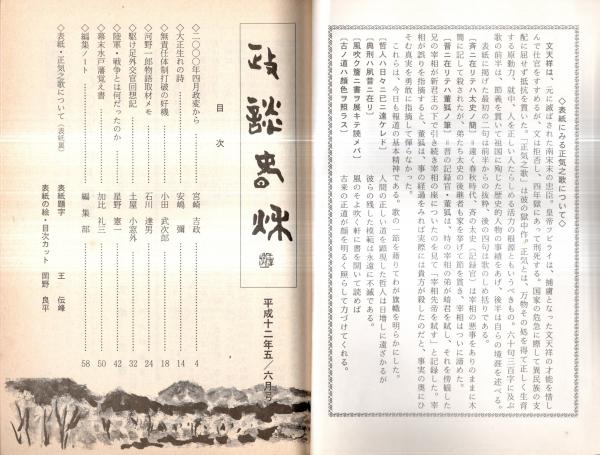 ◇表紙にみる正気之歌について◇
文天祥は、元に滅ぼされた南宋末の忠臣。皇帝フビライは、捕虜となった文天祥の才能を惜し
んで仕官をすすめるが、文は拒否し、四年獄にあって刑死する。国家の危急に際して異民族の支
配に屈せず抵抗を貫いた。「正気之歌」は、彼の獄中作。正気とは、万物その処を得て正しく生育
する原動力、就中、人を正しい人たらしめる活力の根源ともいうべきもの。六十句三百字に及ぶ
歌の前半は、節義を貫いて祖国に殉じた歴史的人物の事績をあげ、後半は自らの境涯を述べる。
表紙に掲げた最初の二句は前半からの抜粋、後の四句は歌のしめ括りである。
[斉ニ在リテハ太史ノ簡]=遠く春秋時代、斉の太史(記録官)は宰相の悪事をありのままに木
簡に記して殺されたが、弟たち太史の後継者も家を挙げて節を貫き、宰相はついに諦めた。
[晋ニ在リテハ董狐ノ筆]=晋の記録官・董狐は、時の宰相の弟が暗君を弑し、それを傍観した
兄の宰相が新君主の下で引き続き宰相の座についたのを見て「宰相先帝を弑す」と記録した。宰
相が誤りを指摘すると、董狐は、事の経過をみれば実際には貴方が殺したのだと、事実の奥にひ
そむ真実を勇敢に指摘して憚らなかった。
これらは、今日も報道の基本精神である。歌の一節を藉りてわが旗幟を明らかにした。
[哲人ハ日々ニ已ニ遠ケレド] 人間の正しい道を顕現した哲人は日増しに遠ざかるが
[典刑ハ夙昔ニ在リ] 彼らの残した模範は永遠に不滅である。
[風吹ク簷ニ書ヲ展キテ読メバ] 風のそよ吹く軒に書を開いて読めば
[古ノ道ハ顔色ヲ照ラス] 古来の正道が顔を明るく照らして力づけてくれる。
政談春秋
平成十二年五/六月号
目 次
◇二〇〇〇年四月政変から 宮崎 吉政 4
◇大正生れの詩 安嶋 彌 14
◇無責任体制打破の好機 小田 武次郎 18
◇河野一郎物語取材メモ 石川 達男 24
◇駆け足外交官回想記 土屋 小窓外 32
◇陸軍・戦争とは何だったのか 星野 憲一 42
◇幕末水戸藩覚え書 加比 礼三 50
◇編集ノート 編 集 部 58
◇表紙・正気之歌について(表紙裏)
表紙題字 王 伝峰
表紙の絵・目次カット 岡野 良平